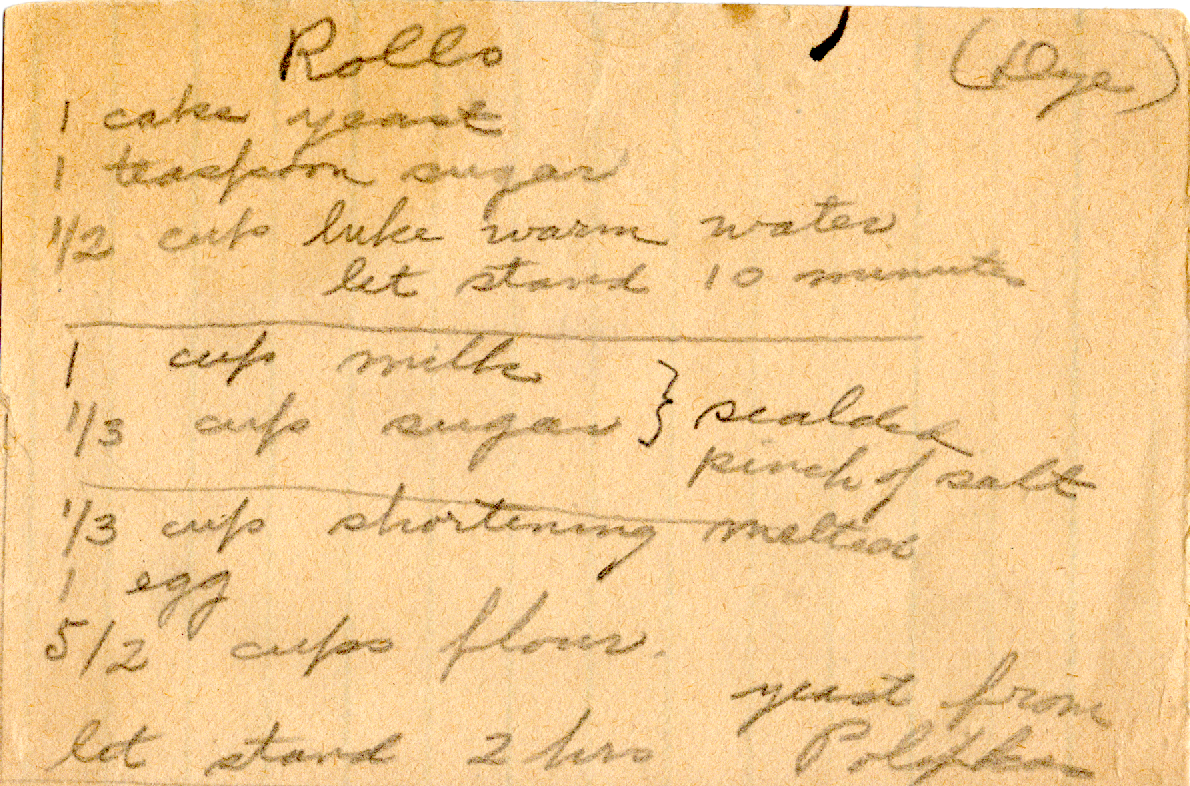 Rolls
(Dye)
1 cake yeast
1 teaspoon sugar
1/2 cup luke warm water
let stand 10 minutes
1 cup milk
1/3 cup sugar } scalded
pinch of salt
1/3 cup shortening melted
1 egg
5/2 cups flour.
yeast from
let stand 2 hrs